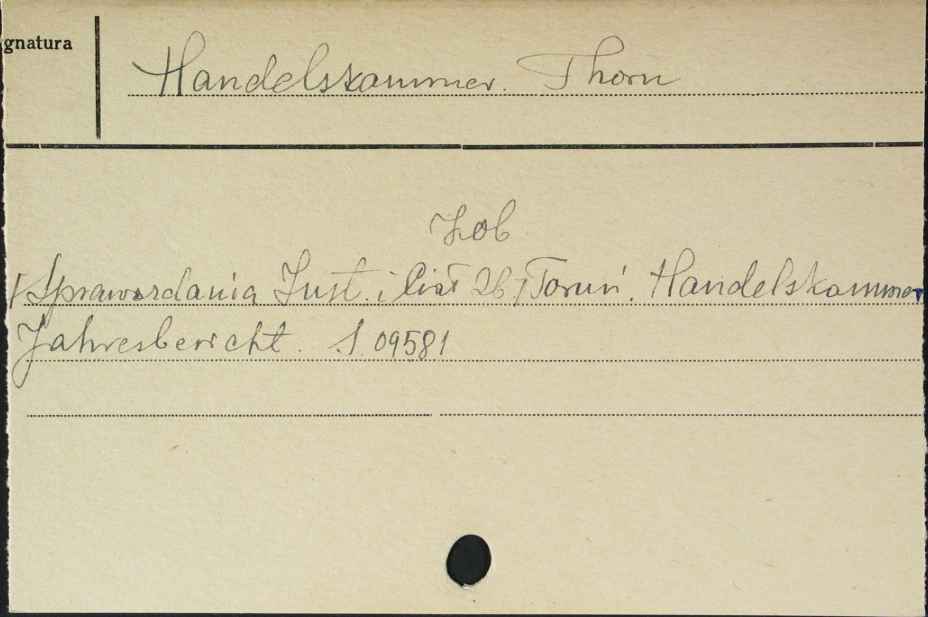 gnatura
Handelskammer. Thorn
Zob
Sprawozdania Inst. i 26 Toruń. Handelskammer
Jahresbericht. S 09581